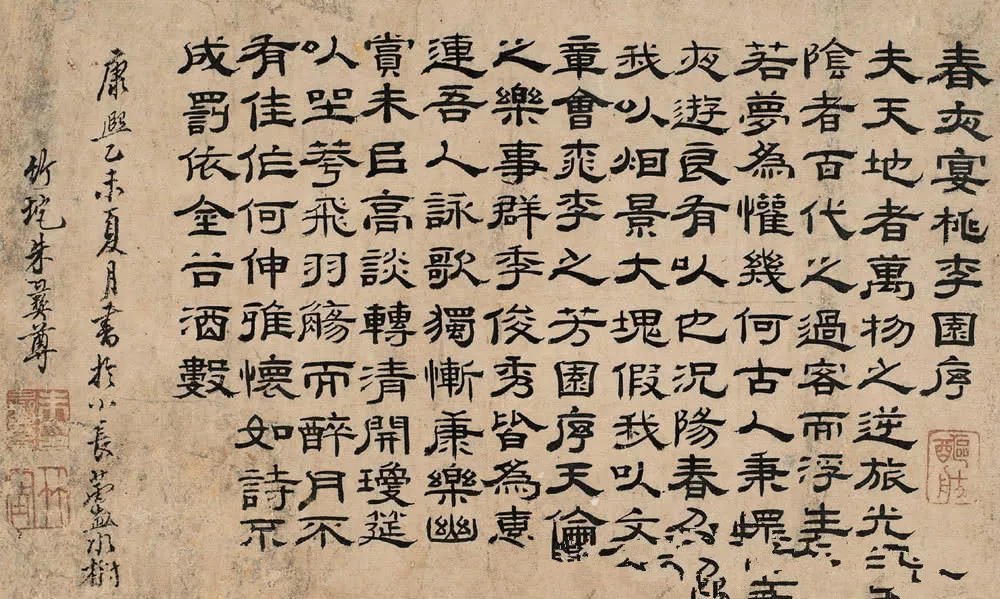 春夜宴桃李園序
夫天地者萬物之逆旅光
陰者百代之過客而浮生
若夢為懽幾何古人秉
夜遊良有以也況陽春召
我以烟景大塊假我以文
章會桃李之芳園序天倫
之樂事群季俊秀皆為惠
連吾人詠歌獨慚康樂幽
賞未已高談轉清開瓊筵
以坐荂飛羽觴而醉月不
有佳作何伸雅懷如詩不
成罰依金谷酒數
康熙乙未夏月書於小長蘆水榭
竹垞朱彝尊
醧舫